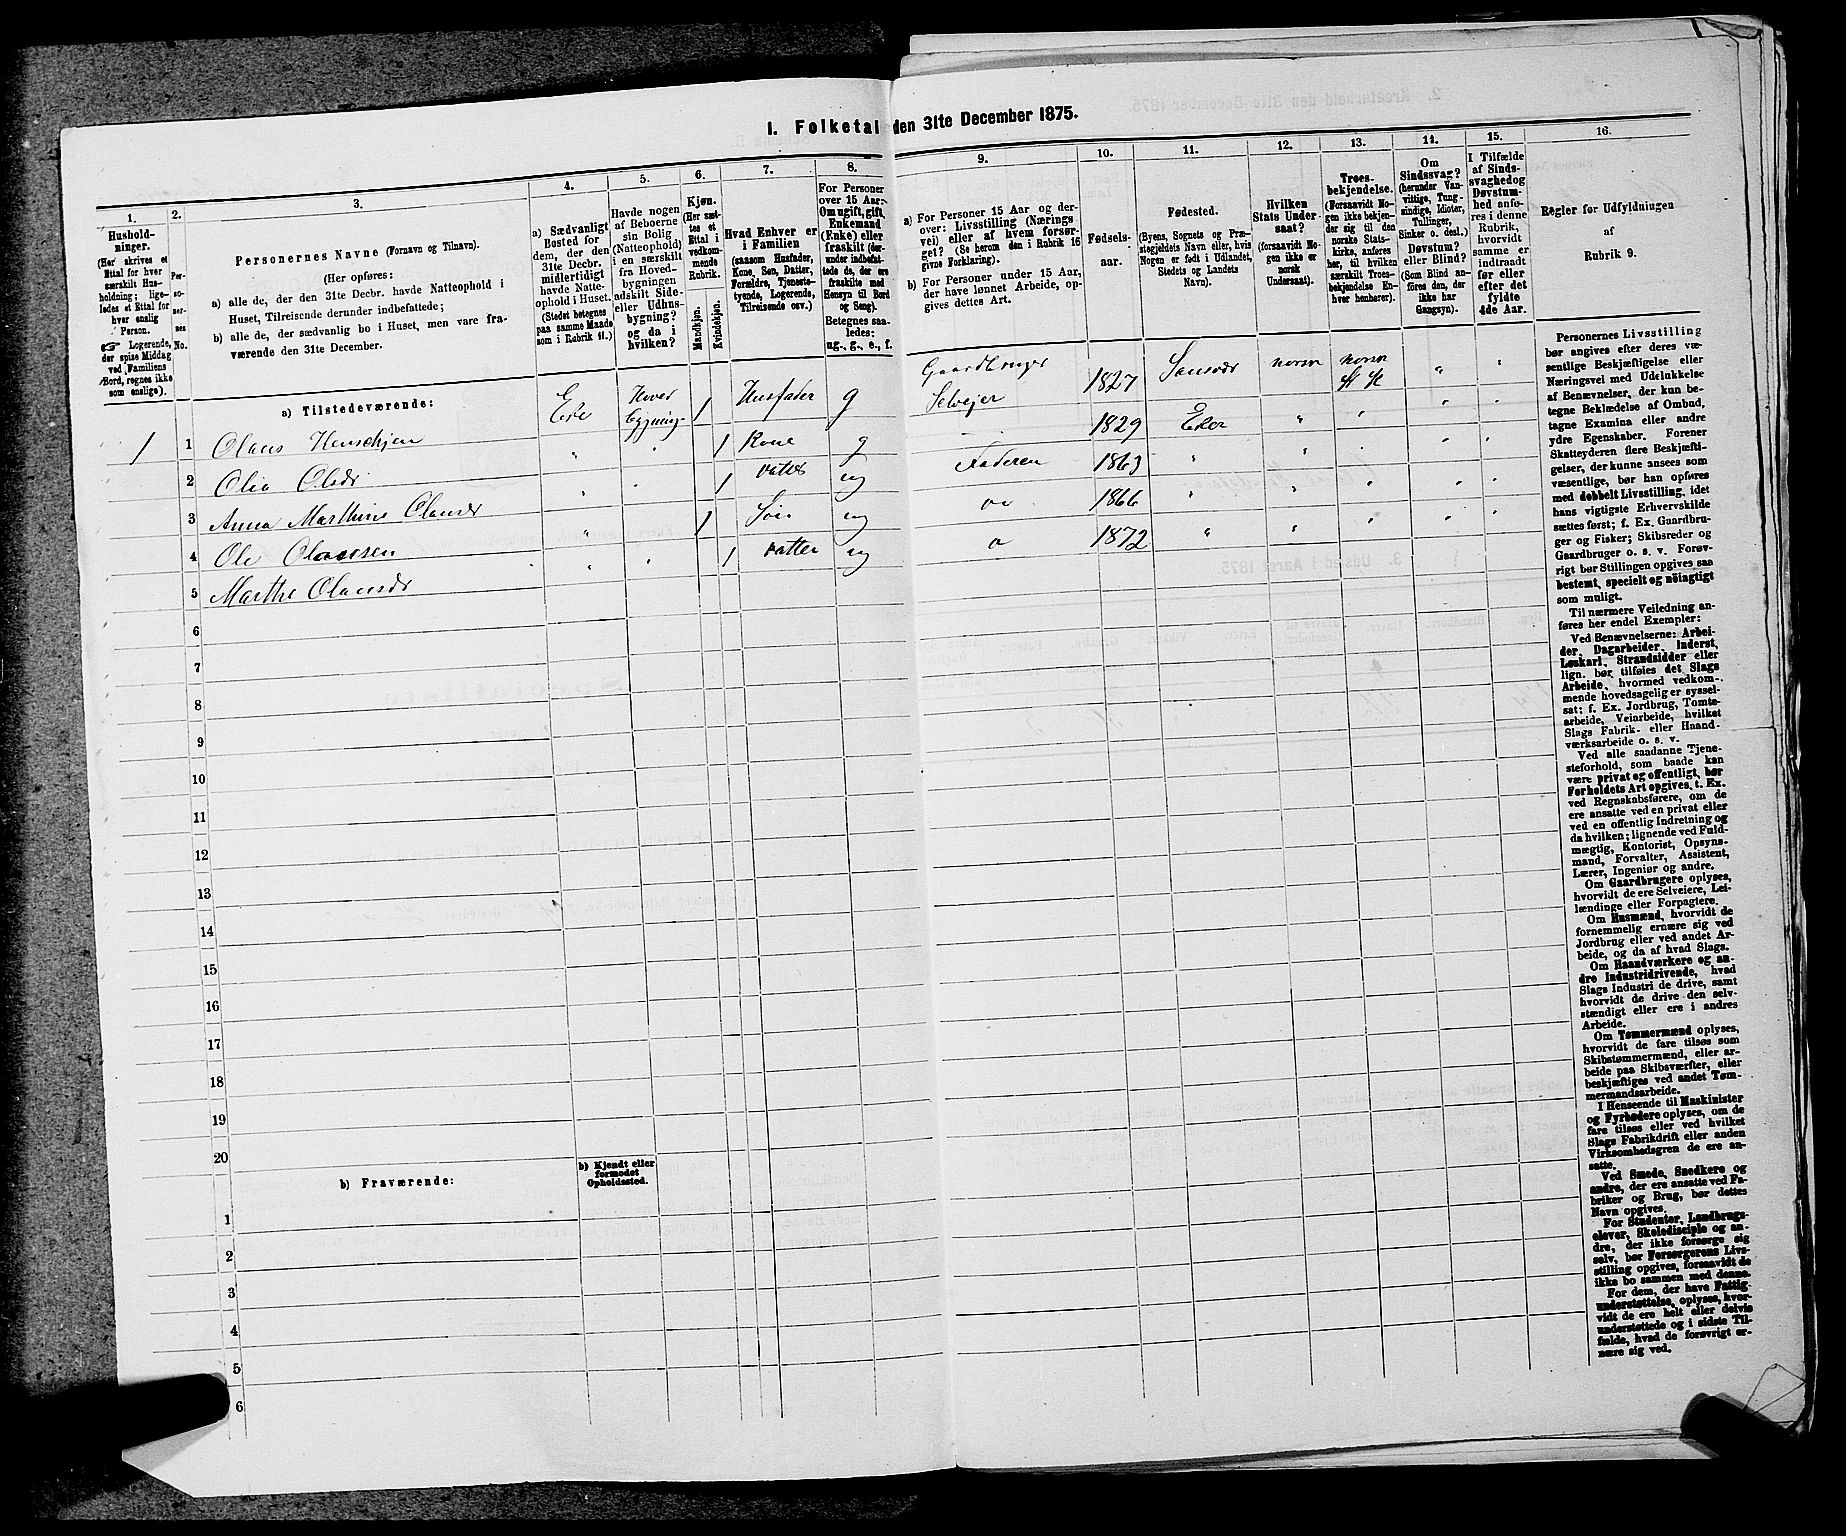 1. Folketal den 31te December 1875.
1.
Hushold-
ninger.
(Her skrives et
Ettal for hver
særskilt Hus-
holdning; lige-
ledes et Ettal for
hver enslig
Person.
☞ Logerende,
der spise Middag
ved Familiens
Bord, regnes ikke
som enslige).
2.
Per-
so-
ner-
nes
No.
3.
Personernes Navne (Fornavn og Tilnavn).
(Her opføres:
a) alle de, der den 31te Decbr. havde Natteophold i
Huset, Tilreisende derunder indbefattede;
b) alle de, der sædvanlig bo i Huset, men vare fra-
værende den 31te December.
4.
a) Sædvanligt
Bosted for
dem, der den
31te Decbr.
midlertidigt
havde Natte-
ophold i Huset.
(Stedet betegnes
paa samme Maade
som i Rubrik 11.)
5.
Havde nogen
af Beboerne
sin Bolig
(Natteophold)
i en særskilt
fra Hoved-
bygningen
adskilt Side-
eller Udhus-
bygning?
og da i
hvilken?
6.
Kjøn.
(Her sæt-
tes et
Ettal i
vedkom-
mende
Rubrik.
Mandkjøn.
Kvindekjøn.
7.
Hvad Enhver er
i Familien
(saasom Husfader,
Kone, Søn, Datter,
Forældre, Tjeneste-
tyende, Logerende,
Tilreisende osv.)
8.
For Personer
over 15 Aar:
Om ugift, gift,
Enkemand
(Enke) eller
fraskilt (der-
under indbefat-
tede de, der ere
fraskilte med
Hensyn til Bord
og Seng).
Betegnes saa-
ledes:
ug., g., e., f.
9.
a) For Personer 15 Aar og der-
over: Livsstilling (Nærings-
vei) eller af hvem forsør-
get? (Se herom den i Rubrik 16
givne Forklaring).
b) For Personer under 15 Aar,
der have lønnet Arbeide, op-
gives dettes Art.
10.
Fødsels-
aar.
11.
Fødested.
(Byens, Sognets og Præ-
stegjeldets Navn eller, hvis
Nogen er født i Udlandet,
Stedets og Landets
Navn).
12.
Hvilken
Stats Under-
saat?
(forsaavidt No-
gen ikke er
norsk
Undersaat).
13.
Troes-
bekjendelse.
(Forsaavidt No-
gen ikke bekjen-
der sig til den
norske Stats-
kirke, anføres
her, til hvilken
særskilt Troes-
bekjendelse En-
hver henhører).
14.
Om
Sindssvag?
(herunder Van-
vittige, Tung-
sindige, Idioter,
Tullinger,
Sinker o. desl.)
Døvstum?
eller Blind?
(Som Blind an-
føres den, der
ikke har
Gangsyn).
15.
I Tilfælde
af Sinds-
svaghed og
Døvstum-
hed anfø-
res i denne
Rubrik,
hvorvidt
samme er
indtraadt
før eller
efter det
fyldte
4de Aar.
16.
Regler for Udfyldningen
af
Rubrik 9.
a) Tilstedeværende:
1 1 Olaus Henschjen Eie Hoved bygning 1 Husfader g Gaardbruger Selveier 1827 norsk norsk
2 Olia Olsdr " " 1 Kone g 1829 Eker " "
3 Anna Marthine Olausdr " " 1 Datter ug Faderen 1863 " " "
4 Ole Olaussen " 1 Søn ug 1866 " " "
5 Marthe Olausdr " " 1 Datter ug 1872 " " "
6
7
8
9
10
11
12
13
14
15
16
17
18
19
20
b) Fraværende:
b) Kjendt eller
formodet
Opholdssted.
1
2
3
4
5
6
Personernes Livsstilling
bør angives efter deres væ-
sentlige Beskjæftigelse eller
Næringsvei med Udelukkelse
af Benævnelser, der kun be-
tegne Beklædelse af Ombud,
tagne Examina eller andre
ydre Egenskaber. Forener
Skatteyderen flere Beskjæfti-
gelser, der kunne ansees som
væsentlige, bør han opføres
med dobbelt Livsstilling, idet
hans vigtigste Erhvervskilde
sættes først; f. Ex. Gaardbru-
ger og Fisker; Skibsreder og
Gaardbruger o. s. v. Forøv-
rigt bør Stillingen opgives saa
bestemt, specielt og nöiagtigt
som muligt.
Til nærmere Veiledning an-
føres her endel Exempler:
Ved Benævnelserne: Arbei-
der, Dagarbeider, Inderst,
Løskarl, Strandsidder eller
lign. bør tilføies det Slags
Arbeide, hvormed vedkom-
mende hovedsagelig er syssel-
sat; f. Ex. Jordbrug, Tomte-
arbeide, Veiarbeide, hvilket
Slags Fabrik- eller Haand-
værksarbeide o. s. v.
Ved alle saadanne Tjene-
steforhold, som baade kan
være privat og offentligt, bør
Forholdets Art opgives, t. Ex.
ved Regnskabsførere, om de
ere ansatte ved en privat eller
ved en offentlig Indretning og
da hvilken; lignende ved Fuld-
mægtig, Kontorist, Opsyns-
mand, Forvalter, Assistent,
Lærer, Ingeniør og andre.
Om Gaardbrugere oplyses,
hvorvidt de ere Selveiere, Lei-
lændinge eller Forpagtere.
Om Husmænd, hvorvidt de
fornemmelig ernære sig ved
Jordbrug eller ved andet Ar-
beide, og da af hvad Slags.
Om Haandværkere og an-
dre Industridrivende, hvad
Slags Industri de drive, samt
hvorvidt de drive den selv-
stændigt eller ere i andres
Arbeide.
Om Tømmermænd oplyses,
hvorvidt de fare tilsøs som
Skibstømmermænd, eller ar-
beide paa Skibsværfter, eller
beskjæftiges ved andet Tøm-
mermandsarbeide.
I Henseende til Maskinister
og Fyrbødere oplyses, om de
fare tilsøs eller ved hvilket
Slags Fabrikdrift eller anden
Virksomhedsgren de ere an-
satte.
Ved Smede, Snedkere og
andre, der ere ansatte ved Fa-
briker og Brug, bør dettes
Navn opgives.
For Studenter, Landbrugs-
elever, Skoledisciple og an-
dre, der ikke forsørge sig
selv, bør Forsørgerens Livs-
stilling opgives, forsaavidt de
ikke bo sammen med denne.
For dem, der have Fattig-
understøttelse, oplyses, hvor-
vidt de ere helt eller delvis
understøttede og i sidste Til-
fælde, hvad de forøvrigt er-
nære sig ved.